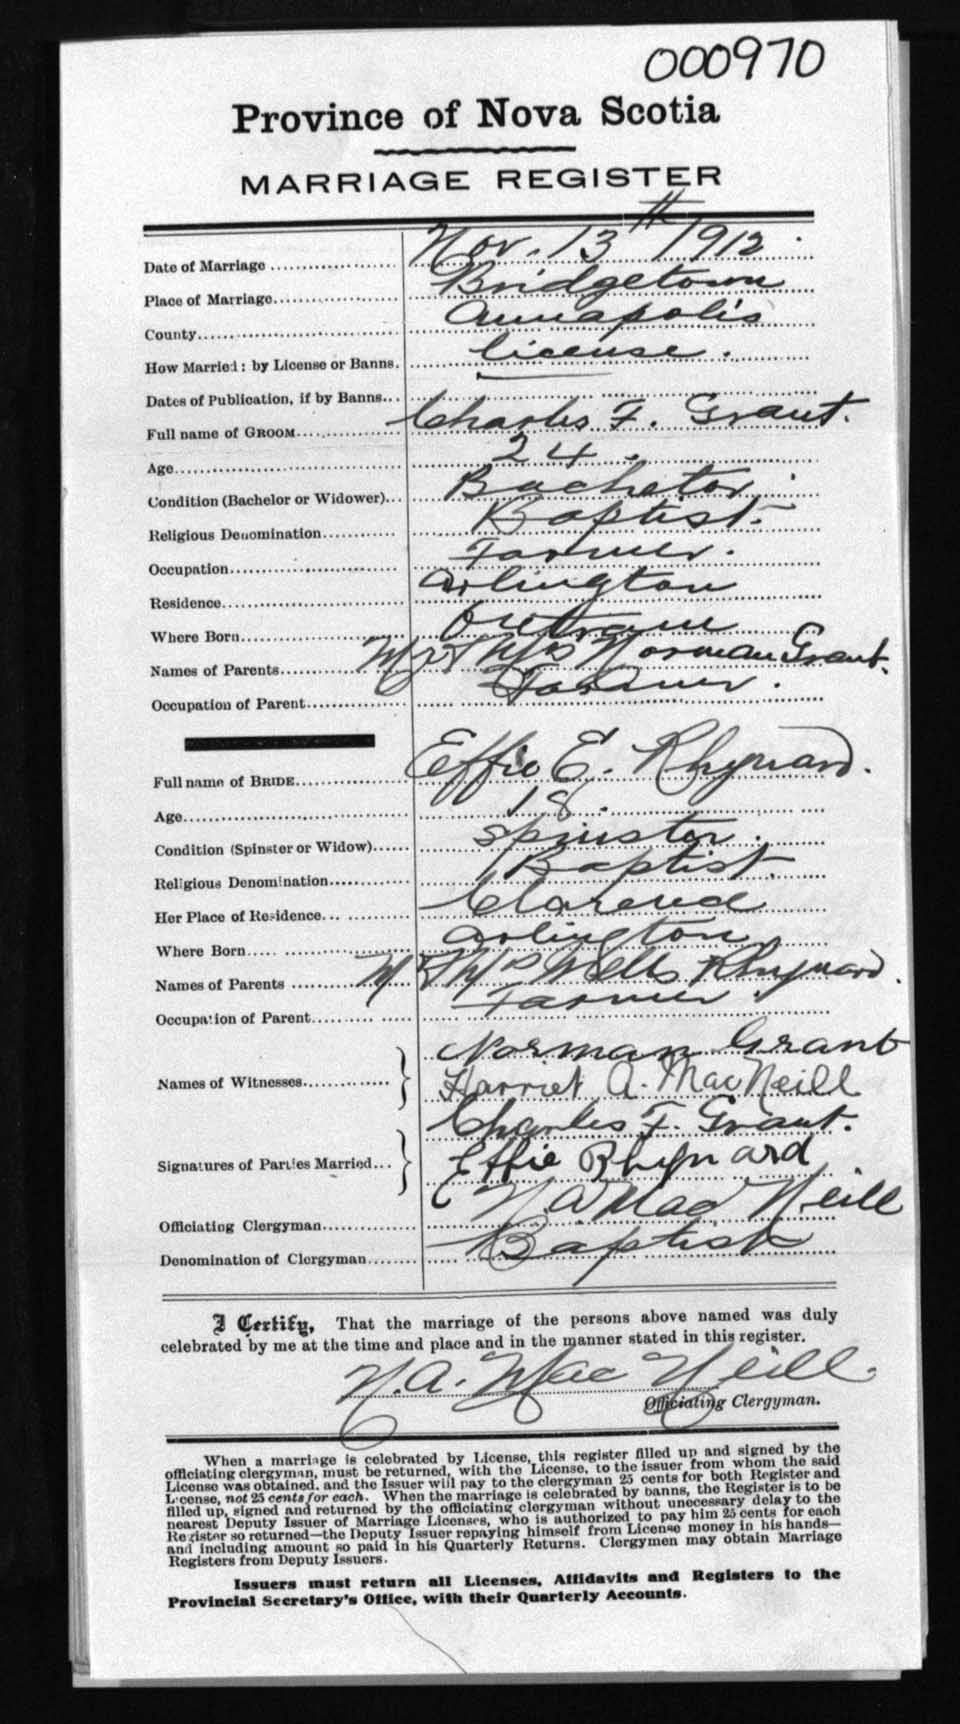 000970
Province of Nova Scotia
MARRIAGE REGISTER
Date of Marriage Nov. 13th 1912.
Place of Marriage Bridgetown
County Annapolis
How Married: by License or Banns. license.
Dates of Publication, if by Banns
Full name of GROOM Charles F. Grant.
Age 24.
Condition (Bachelor or Widower) Bachelor.
Religious Denomination Baptist.
Occupation Farmer.
Residence Arlington
Where Born Outram
Names of Parents Mr & Mrs Norman Grant.
Occupation of Parent Farmer.
Full name of BRIDE Effie E. Rhynard.
Age 18.
Condition (Spinster or Widow) Spinster.
Religious Denomination Baptist.
Her Place of Residence Clarence
Where Born Arlington
Names of Parents Mr & Mrs Wells Rhynard.
Occupation of Parent Farmer.
Names of Witnesses Norman Grant
Harriet A. MacNeill
Signatures of Parties Married Charles F. Grant.
Effie Rhynard
Officiating Clergyman N. A. MacNeill
Denomination of Clergyman Baptist
I Certify, That the marriage of the persons above named was duly
celebrated by me at the time and place and in the manner stated in this register.
N. A. MacNeill.
Officiating Clergyman.
When a marriage is celebrated by License, this register filled up and signed by the
officiating clergyman, must be returned, with the License, to the issuer from whom the said
License was obtained, and the Issuer will pay to the clergyman 25 cents for both Register and
License, not 25 cents for each. When the marriage is celebrated by banns, the Register is to be
filled up, signed and returned by the officiating clergyman without unnecessary delay to the
nearest Deputy Issuer of Marriage Licenses, who is authorized to pay him 25 cents for each
Register so returned—the Deputy Issuer repaying himself from License money in his hands—
and including amount so paid in his Quarterly Returns. Clergymen may obtain Marriage
Registers from Deputy Issuers.
Issuers must return all Licenses, Affidavits and Registers to the
Provincial Secretary's Office, with their Quarterly Accounts.